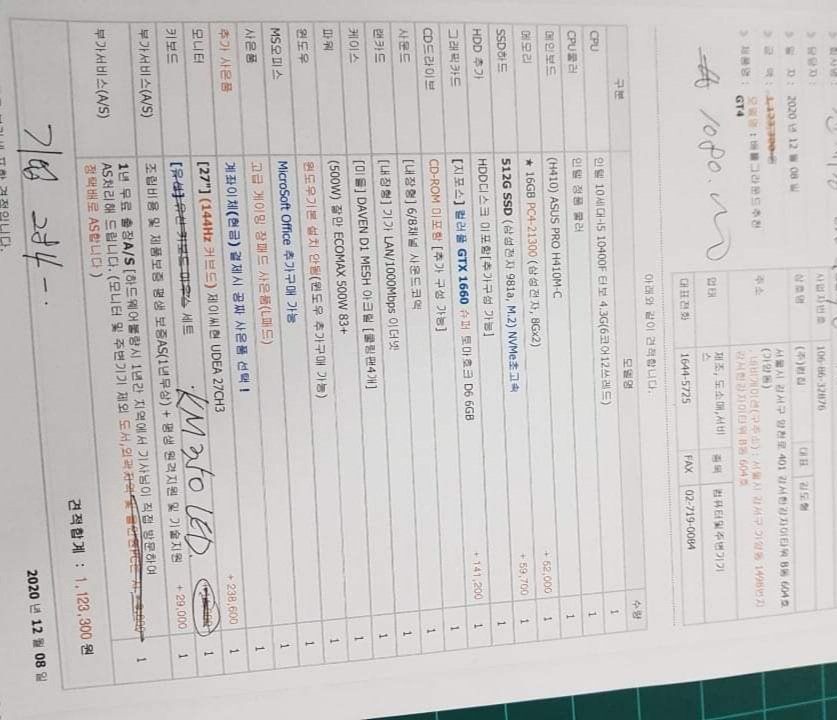 담당자 :
일 자 : 2020 년 12 월 08 일
금 액 : 1,123,300 원
제품명 : 모델명 : 배틀그라운드추천
GT4
사업자번호 106-86-32876
상호명 (주)컴집 대표 김도형
주소 서울시 강서구 양천로 401 강서한강자이타워 B동 604호
(가양동)
네비게이션(구주소) : 서울시 강서구 가양동 1498번지
강서한강자이타워 B동 604호
업태 제조, 도소매,서비스 종목 컴퓨터및주변기기
대표전화 1644-5725 FAX 02-719-0084
아래와 같이 견적합니다.
구분 모델명 수량
CPU 인텔 10세대-i5 10400F 터보 4.3G(6코어12쓰레드) 1
CPU쿨러 인텔 정품 쿨러 1
메인보드 (H410) ASUS PRO H410M-C + 62,000 1
메모리 ★ 16GB PC4-21300 (삼성전자, 8Gx2) + 59,700 1
SSD하드 512G SSD (삼성전자 981a, M.2) NVMe초고속 1
HDD 추가 HDD디스크 미포함[추가구성 가능] + 141,200 1
그래픽카드 [지포스] 컬러풀 GTX 1660 슈퍼 토마호크 D6 6GB 1
CD드라이브 CD-ROM 미포함 [추가 구성 가능] 1
사운드 [내장형] 6/8채널 사운드코덱 1
랜카드 [내장형] 기가 LAN/1000Mbps 이더넷 1
케이스 [미들] DAVEN D1 MESH 아크릴 [쿨링팬4개] 1
파워 (500W) 잘만 ECOMAX 500W 83+ 1
윈도우 윈도우기본 설치 안됨(윈도우 추가구매 가능) 1
MS오피스 MicroSoft Office 추가구매 가능 1
사은품 고급 게이밍 장패드 사은품(L패드) 1
추가 사은품 계좌이체(현금) 결제시 공짜 사은품 선택 ! 1
모니터 [27"] (144Hz 커브드) 제이씨현 UDEA 27CH3 + 238,600 1
키보드 [유선] 유선 키보드 마우스 세트 1
부가서비스(A/S) 조립비용 및 제품보증 평생 보증AS(1년무상) + 평생 원격지원 및 기술지원 + 29,000 1
부가서비스(A/S) 1년 무료 출장A/S [하드웨어불량시 1년간 지역에서 기사님이 직접 방문하여
AS처리해 드립니다.(모니터 및 주변기기 제외 도서,외곽지역 및 1
정택배로 AS합니다 )
견적합계 : 1,123,300 원
2020 년 12 월 08 일